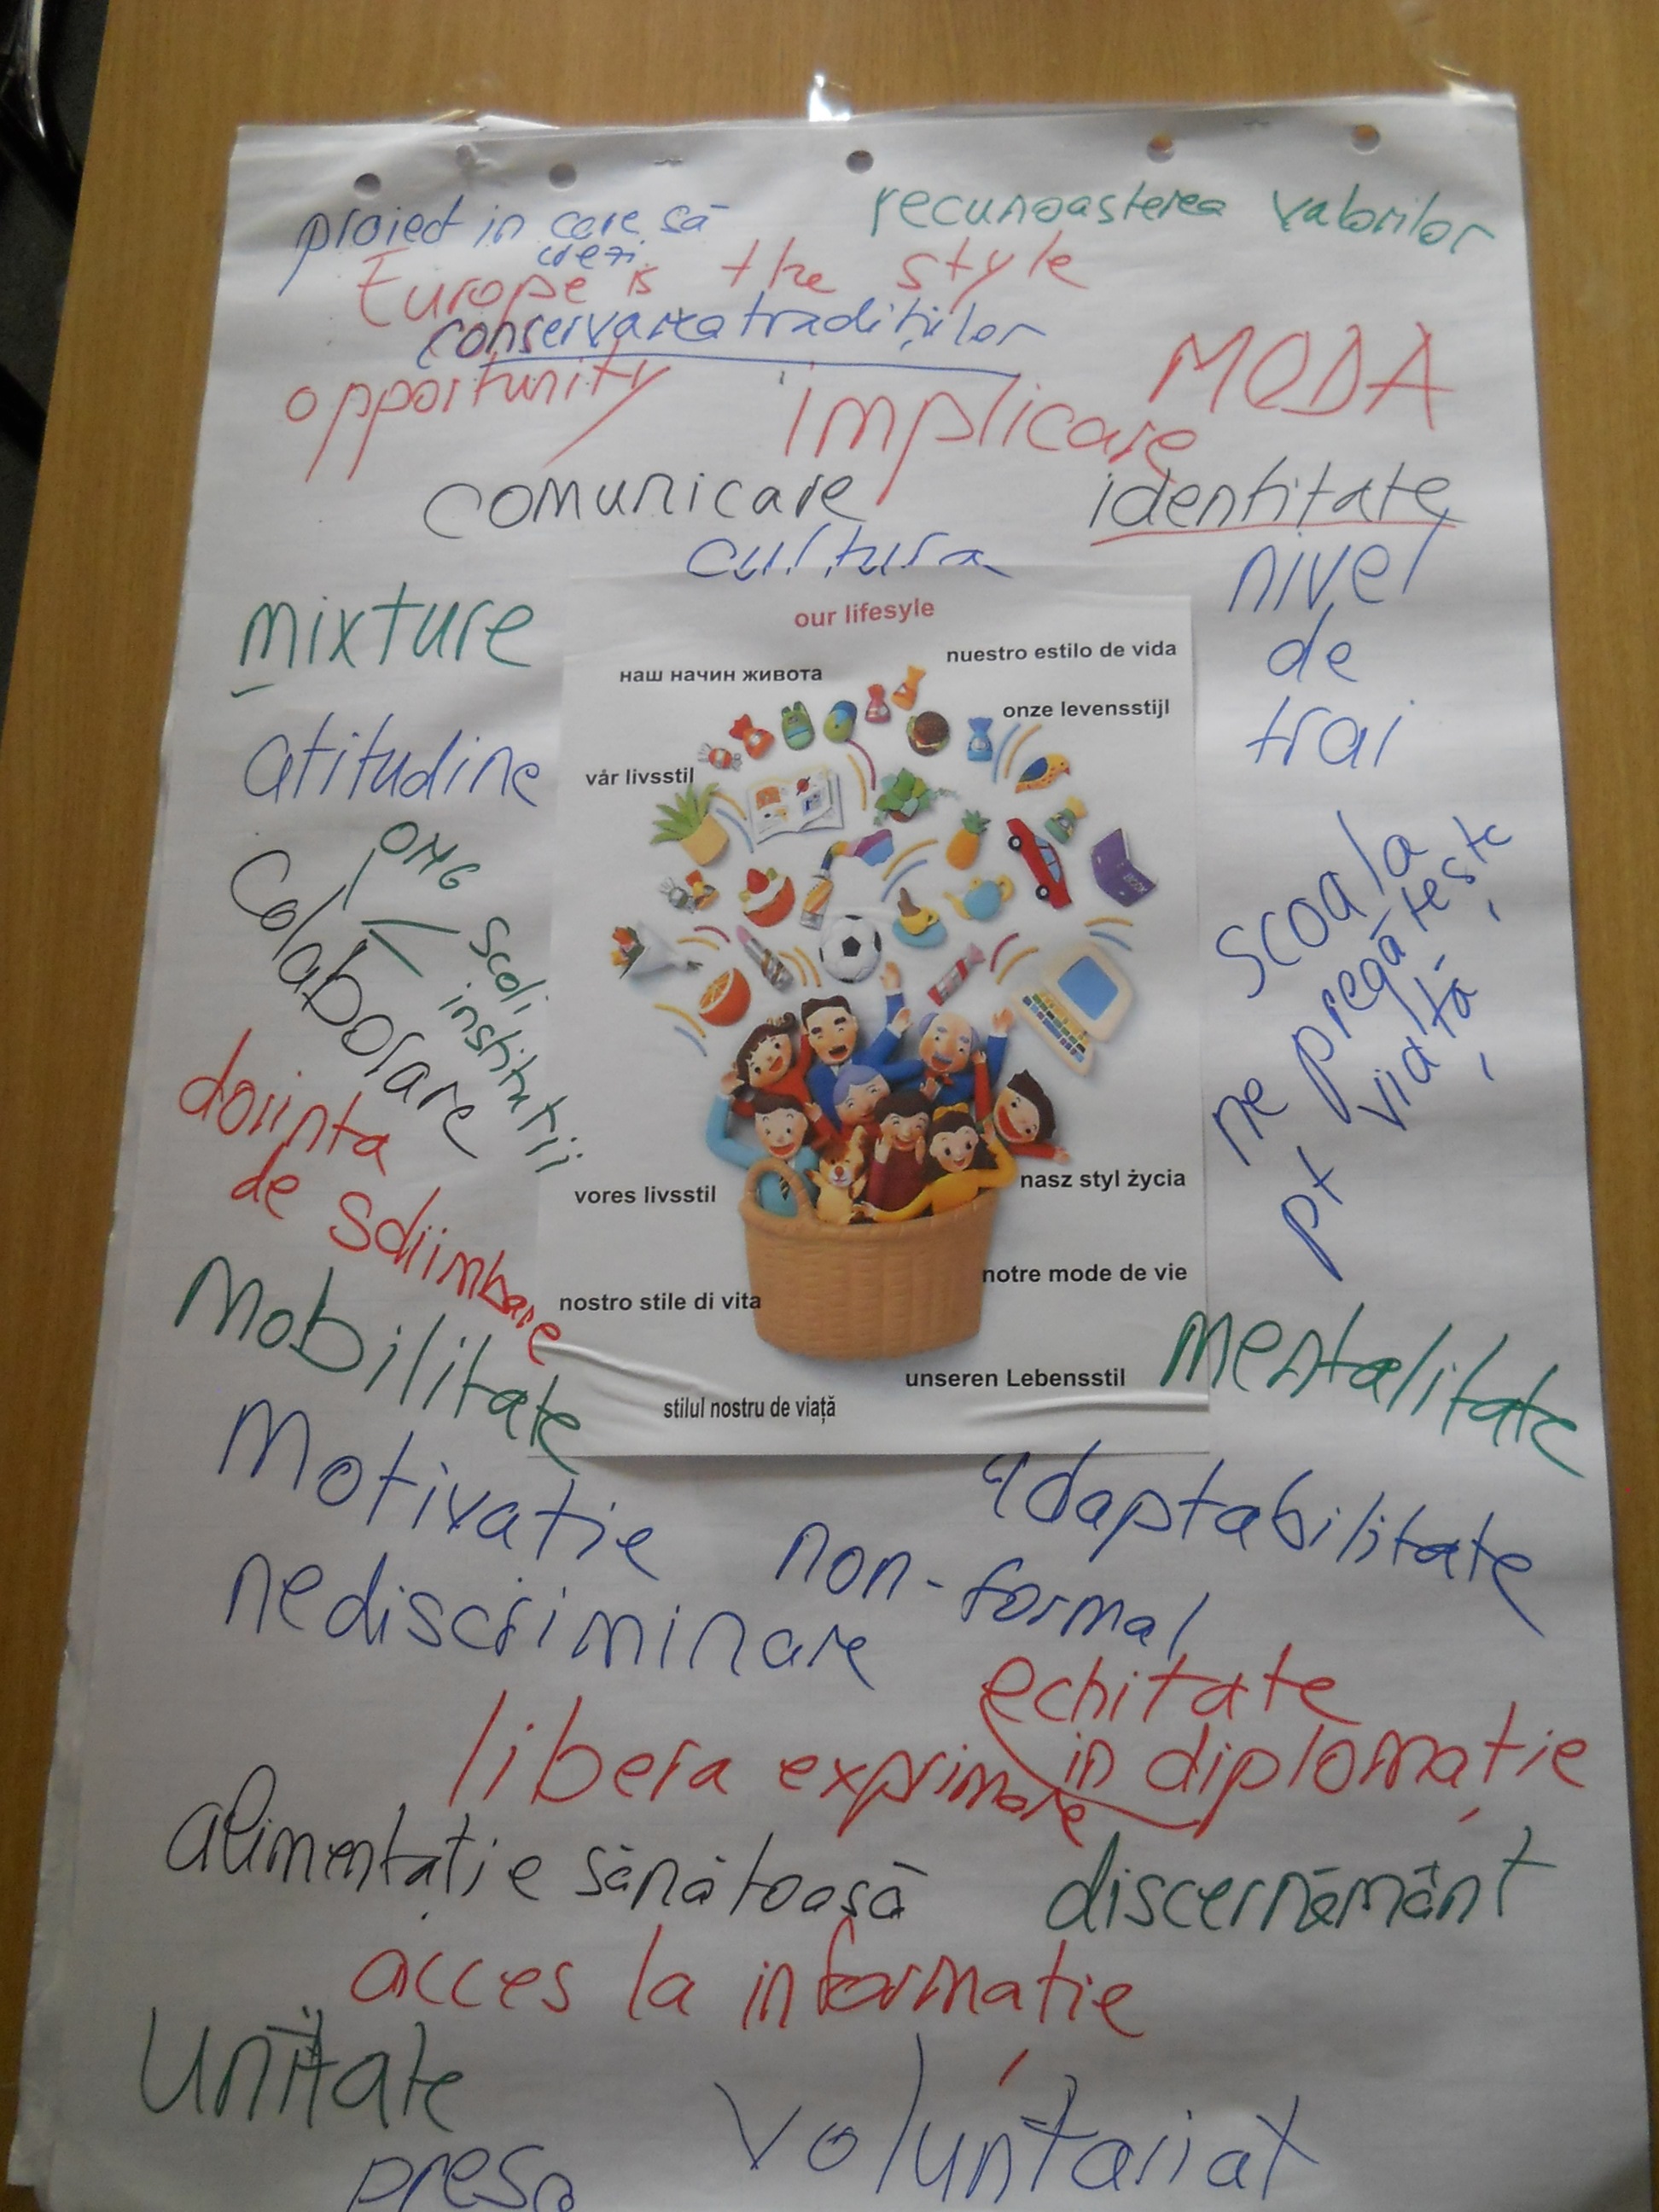 proiect in care să
crezi
recunoasterea valorilor
Europe is the style
conservarea tradițiilor
opportunity
implicare
MODA
comunicare
identitate
cultura
nivel
de
trai
mixture
atitudine
ONG
scoli
institutii
Colaborare
doiinta
de sdiimbare
Mobilitate
our lifesyle
наш начин живота
nuestro estilo de vida
onze levensstijl
vår livsstil
vores livsstil
nasz styl życia
notre mode de vie
nostro stile di vita
unseren Lebensstil
stilul nostru de viață
scoala
ne pregătește
pt viață
mentalitate
Motivatie
adaptabilitate
non-formal
nediscriminare
echitate
in diplomație
libera exprimare
alimentație sănătoasă
discernământ
acces la informație
Unitate
voluntariat
presa